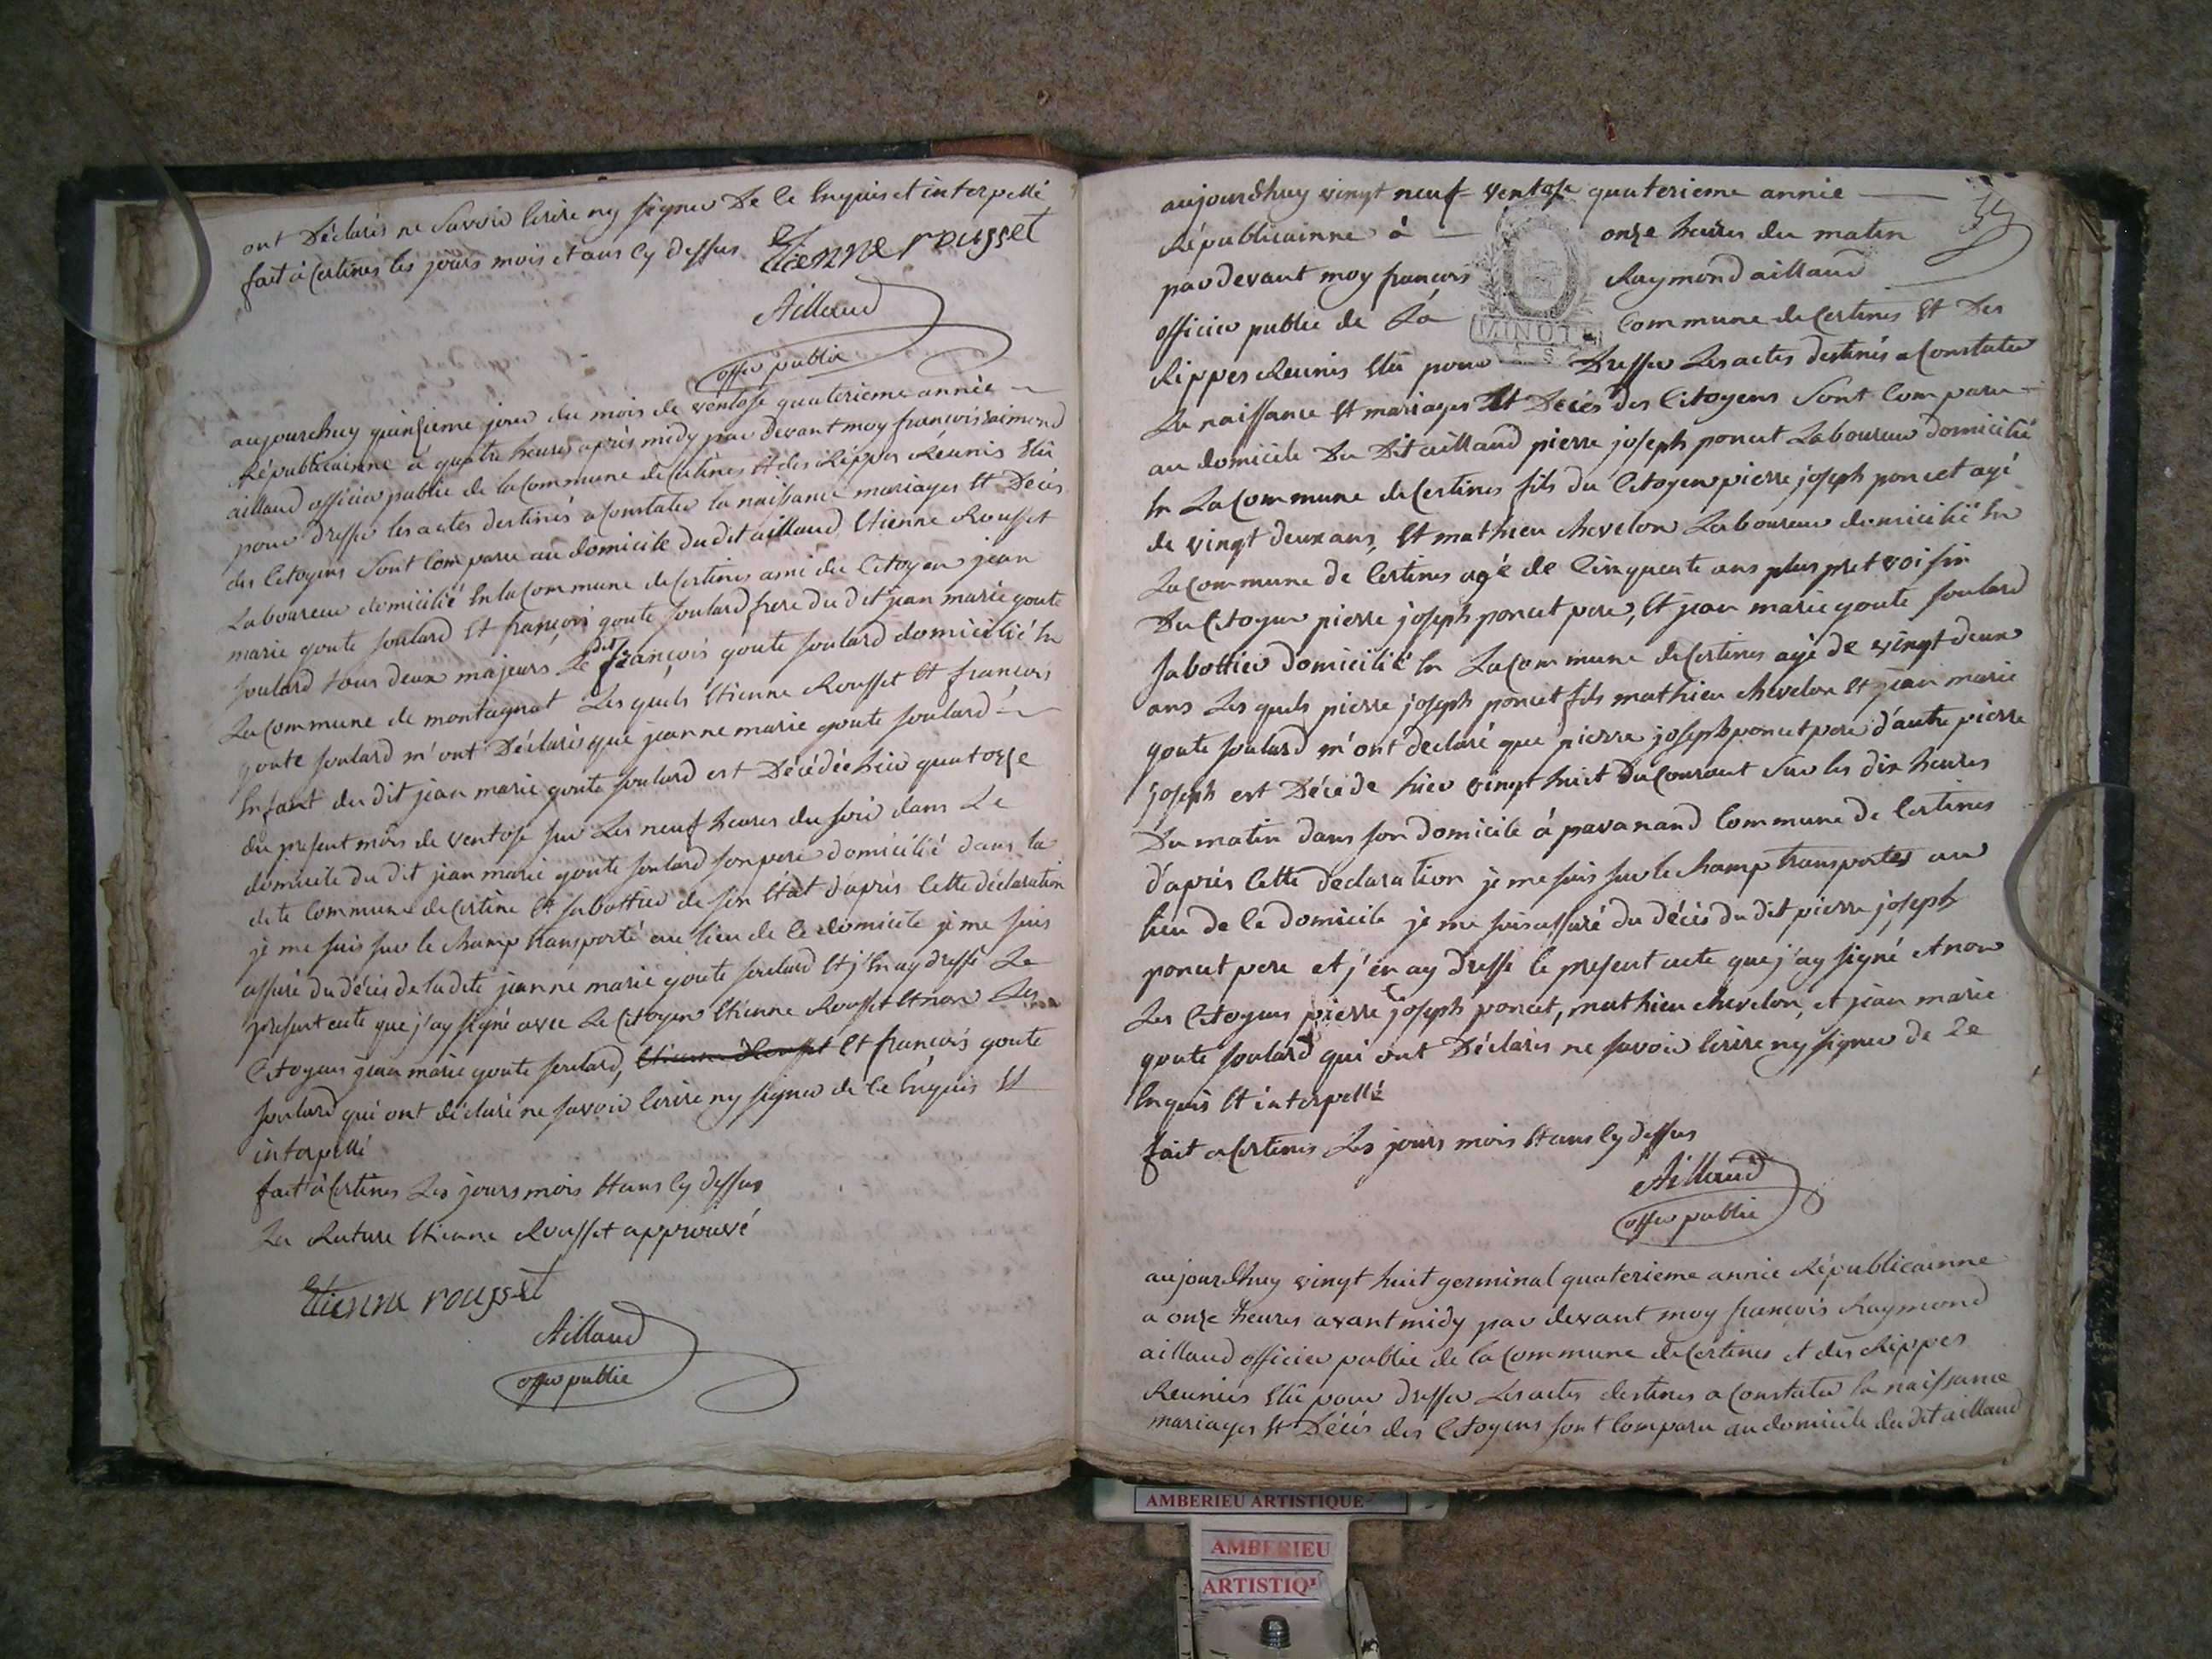 ont Déclarés ne Savoir Ecrire ny Signer De Ce Enquis et interpellé
fait à Certines les jours mois et ans Cy dessus Etienne rousset
Aillaud
offer public
aujourdhuy quinzieme jour du mois de ventose quaterieme année
Républicainne à quatre heures après midy par devant moy françois Raimond
aillaud officier public de la Commune de Certines et des Rippes Réunis Elû
pour dresser les actes destinés a Constater la naissance mariages et Décès
des Citoyens Sont Comparu au domicile du dit aillaud Etienne Rousset
Laboureur domicilié En la Commune de Certines ami du Citoyen jean
marie goute soulard et françois goute soulard frere du dit jean marie goute
soulard tous deux majeurs Le dit françois goute soulard domicilié En
La Commune de montagnat Les quels Etienne Rousset et françois
goute soulard m'ont Déclarés que jeanne marie goute soulard
Enfant du dit jean marie goute soulard est Décédée hier quatorze
du present mois de ventose sur Les neuf heures du soir dans Le
domicile du dit jean marie goute soulard son pere domicilié dans la
dite Commune de Certine et sabottier de son Etat d'après Cette déclaration
je me suis sur le champ transporté au lieu de Ce domicile je me suis
assuré du décès de la dite jeanne marie goute soulard et j'En ay dressé Le
present acte que j'ay signé avec Le Citoyen Etienne Rousset et non Les
Citoyens jean marie goute soulard, Etienne Rousset et françois goute
soulard qui ont déclaré ne savoir Ecrire ny signer de Ce Enquis et
interpellé
fait à Certines Les jours mois et ans Cy dessus
La Rature Etienne Rousset approuvé
Etienne rousset
Aillaud
offer public
aujourdhuy vingt neuf ventose quaterieme année
Républicainne à onze heures du matin
par devant moy françois Raymond aillaud
officier public de La Commune de Certines et Des
MINUTE
Rippes Reunis Elû pour Dresser Les actes destinés a Constater
La naissance et mariages Et Décès des Citoyens Sont Comparu
au domicile Du Dit aillaud pierre joseph poncet Laboureur domicilié
En La Commune de Certines fils du Citoyen pierre joseph poncet agé
de vingt deux ans, Et mathieu chevelon Laboureur domicilié En
La Commune de Certines agé de Cinquente ans plus pret voisin
Du Citoyen pierre joseph poncet pere, Et jean marie goute soulard
sabottier domicilié En La Commune de Certines agé de vingt deux
ans Les quels pierre joseph poncet fils mathieu chevelon et jean marie
goute soulard m'ont declaré que pierre joseph poncet pere d'autre pierre
joseph est Décédé hier vingt huit du Courant Sur les dix heures
Du matin dans son domicile à pavanand Commune de Certines
d'après Cette declaration je me suis sur le champ transportés au
lieu de Ce domicile je me suis assuré du décès du dit pierre joseph
poncet pere et j'en ay dressé le present acte que j'ay signé et non
Les Citoyens pierre joseph poncet, mathieu chevelon, et jean marie
goute soulard qui ont Déclarés ne savoir Ecrire ny signer de Ce
Enquis Et interpellé
fait a Certines Les jours mois et ans Cy dessus
Aillaud
offer public
aujourdhuy vingt huit germinal quaterieme année Républicainne
a onze heures avant midy par devant moy françois Raymond
aillaud officier public de la Commune de Certines et des Rippes
Reunies Elû pour dresser Les actes destinés a Constater la naissance
mariages et Décès des Citoyens sont Comparu au domicile du dit aillaud
AMBERIEU ARTISTIQUE
AMBERIEU
ARTISTIQ